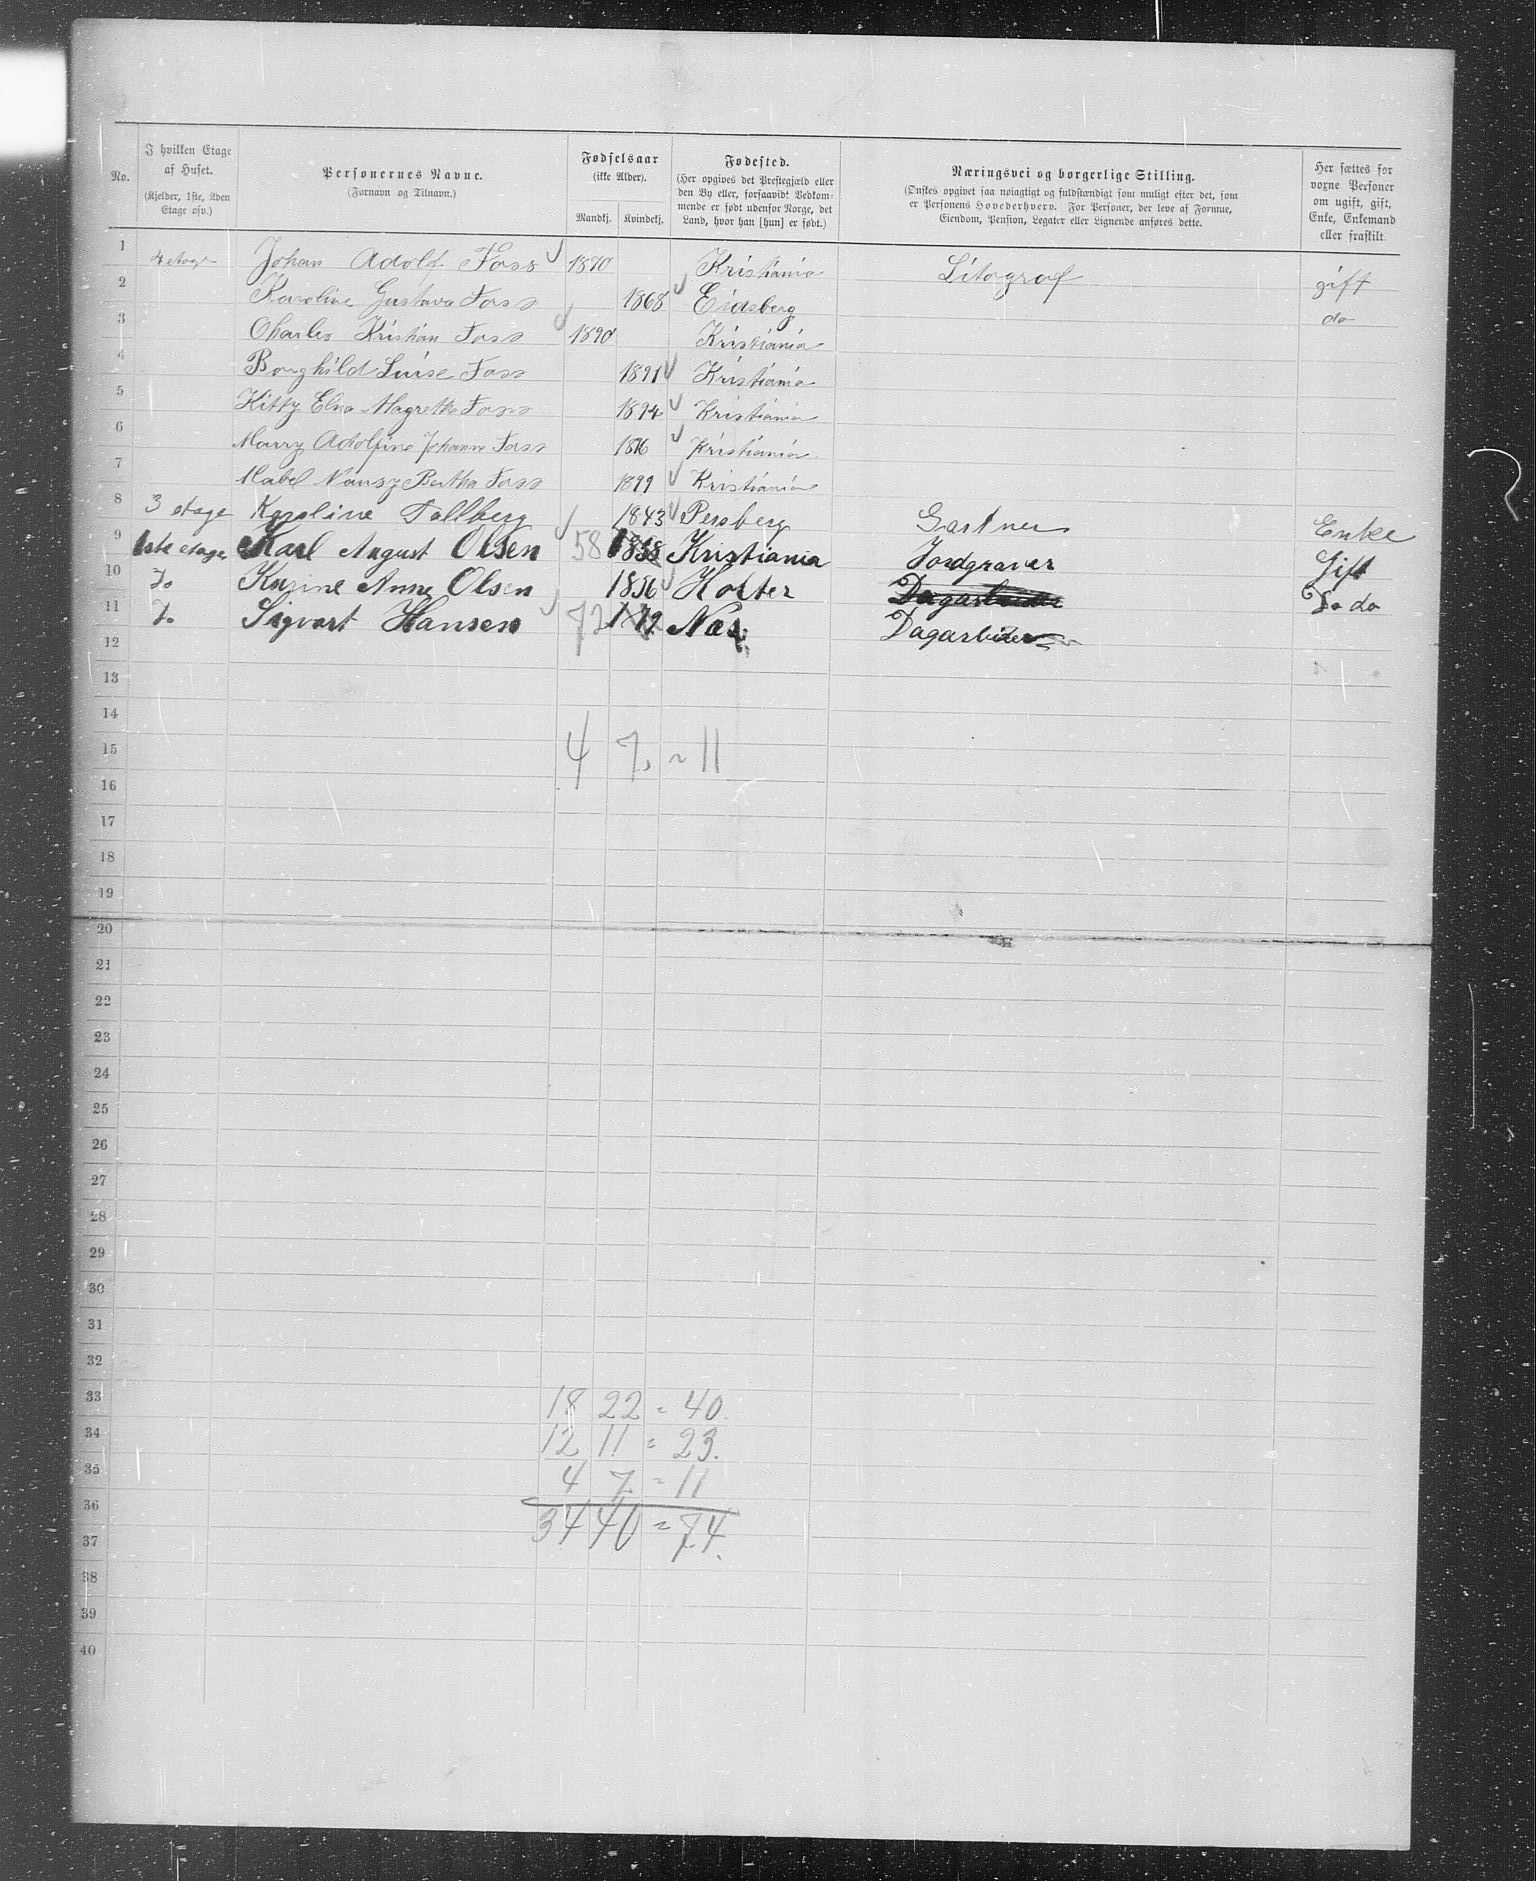 No.
I hvilken Etage af Huset.
(Kjelder, 1ste, 2den Etage osv.)
Personernes Navne.
(Fornavn og Tilnavn.)
Fødselsaar
(ikke Alder).
Mandkj. Kvindekj.
Fødested.
(Her opgives det Prestegjæld eller
den By eller, forsaavidt Vedkom-
mende er født udenfor Norge, det
Land, hvor han [hun] er født.)
Næringsvei og borgerlige Stilling.
(Ønskes opgivet saa nøiagtigt og fuldstændigt som muligt efter det, som
er Personens Hovederhverv. For Personer, der leve af Formue,
Eiendom, Pension, Legater eller Lignende anføres dette.
Her sættes for
voxne Personer
om ugift, gift,
Enke, Enkemand
eller fraskilt.
1 4 etage Johan Adolf Foss 1870 Kristiania Litograf gift
2 Karoline Gustava Foss 1868 Eidsberg do
3 Charles Kristian Foss 1890 Kristiania
4 Borghild Luise Foss 1891 Kristiania
5 Kitty Elna Magrethe Foss 1894 Kristiania
6 Marry Adolfine Johanne Foss 1896 Kristiania
7 Mabel Nansy Bertha Foss 1899 Kristiania
8 3 etage Karoline Follberg 1843 Gartner Enke
9 1ste etage Karl August Olsen 58 1858 Kristiania Jordgraver Gift
10 Do Anne Olsen 1856 Holter Dagarbeider Do do
11 Do Sigvart Hansen 72 Nes Dagarbeider
12
13
14
15 4 7 = 11
16
17
18
19
20
21
22
23
24
25
26
27
28
29
30
31
32
33 18 22 = 40.
34 12 11 = 23.
35 4 7 = 11
36
37 34 40 = 74.
38
39
40